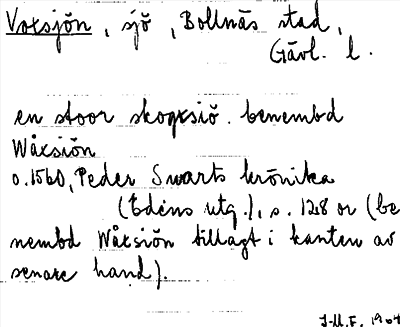 Voxsjön, sjö, Bollnäs stad,
Gävl. l.
en stoor skogxsiö. benembd
Wåxsiön
o.1560, Peder Swarts krönika
(Edéns utg.), s. 128 or (be
nembd Wåxsiön tillagt i kanten av
senare hand).
J-M.F. 1964